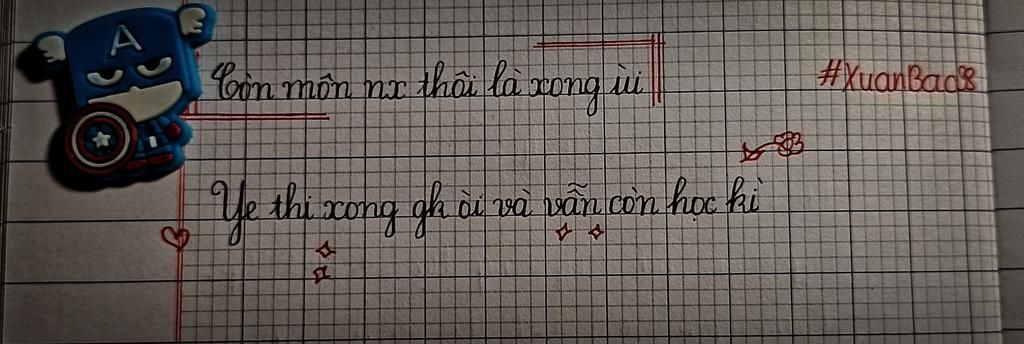 Còn môn nx thôi là xong ùi
#XuanBac98
Ye thi xong gh òi và vẫn còn học kì
A